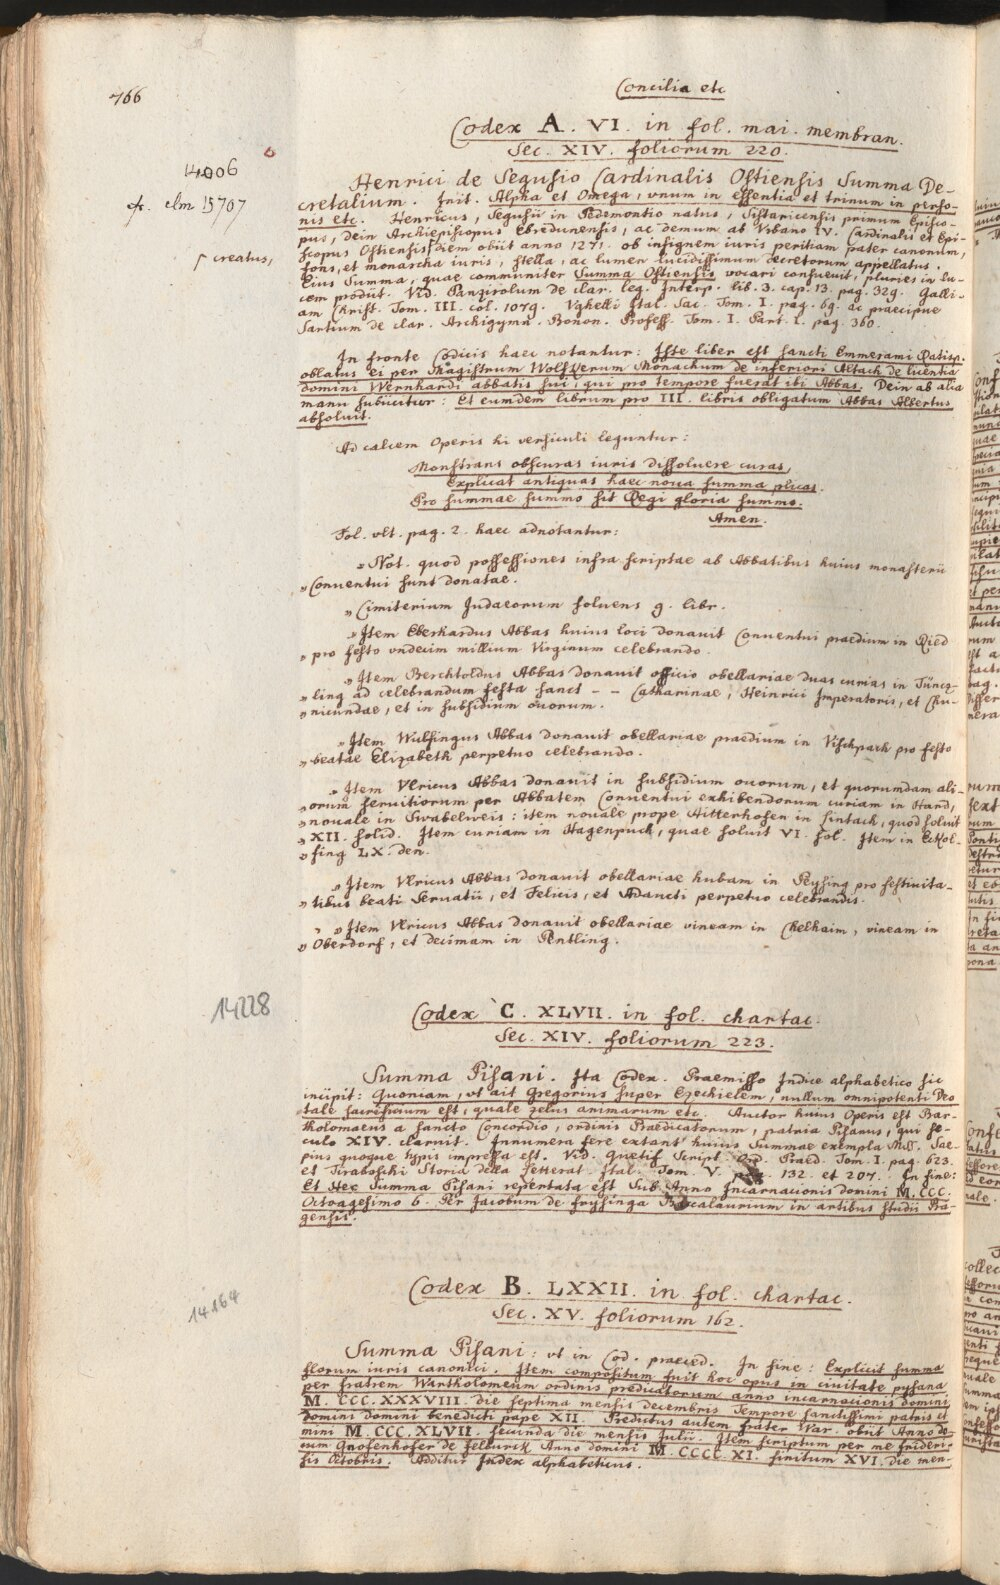 766
Concilia etc
Codex A. VI. in fol. mai. membran.
Sec. XIV. foliorum 220.
14006
cfr. clm 15707
Henrici de Segusio Cardinalis Ostiensis Summa De-
cretalium. Init. Alpha et Omega, vnum in essentia et trinum in perso-
nis etc. Henricus, Segusii in Pedemontio natus, Sistaricensis primum Episco-
pus, dein Archiepiscopus Ebredunensis, ac demum ab Vrbano IV. Cardinalis et Epi-
scopus Ostiensis
creatus,
diem obiit anno 1271. ob insignem iuris peritiam pater canonum,
fons, et monarcha iuris, stella, ac lumen lucidissimum decretorum appellatus.
Eius Summa, quae communiter Summa Ostiensis vocari consueuit, pluries in lu-
cem prodiit. Vid. Panzirolum de clar. leg. Interp. lib. 3. cap. 13. pag. 329. Galli-
am Christ. Tom. III. col. 1079. Vghelli Ital. Sac. Tom. I. pag. 69. ac praecipue
Sartium de clar. Archigymn. Bonon. Profess. Tom. I. Part. I. pag. 360.
In fronte Codicis haec notantur: Iste liber est sancti Emmerami Ratisp.
oblatus ei per Magistrum Wolfkerum Monachum de inferiori Altach de licentia
domini Wernhardi abbatis sui, qui pro tempore fuerat ibi Abbas. Dein ab alia
manu subiicitur: Et eumdem librum pro III. libris obligatum Abbas Albertus
absoluit.
Ad calcem Operis hi versiculi leguntur:
Monstrans obscuras iuris dissoluere curas,
Explicat antiquas haec noua summa plicas.
Pro summae summo sit Regi gloria summo.
Amen.
Fol. vlt. pag. 2. haec adnotantur:
„Not. quod possessiones infra scriptae ab Abbatibus huius monasterii
„Conuentui sunt donatae.
„Cimiterium Judaeorum soluens 9. libr.
„Item Eberhardus Abbas huius loci donauit Conuentui praedium in Ried
„pro festo vndecim millium Virginum celebrando.
„Item Berchtoldus Abbas donauit officio obellariae duas curias in Tüncz-
„ling ad celebrandum festa sanct - - Catharinae, Heinrici Imperatoris, et Chu-
„nicundae, et in subsidium ouorum.
„Item Wulfingus Abbas donauit obellariae praedium in Vischpach pro festo
„beatae Elizabeth perpetuo celebrando.
„Item Vlricus Abbas donauit in subsidium ouorum, et quorumdam ali-
„orum seruitiorum per Abbatem Conuentui exhibendorum curiam in Hard,
„nouale in Swabelweis: item nouale prope Hitterhofen in sintach, quod soluit
„XII. solid. Item curiam in Hagenpuch, quae soluit VI. sol. Item in Eckol-
„fing LX. den.
„Item Vlricus Abbas donauit obellariae hubam in Peysing pro festiuita-
„tibus beati Seruatii, et Felicis, et Adaucti perpetuo celebrandis.
„Item Vlricus Abbas donauit obellariae vineam in Chelhaim, vineam in
„Oberdorf, et decimam in Pentling.
14228
Codex C. XLVII. in fol. chartac.
Sec. XIV. foliorum 223.
Summa Pisani. Ita Codex. Praemisso Indice alphabetico sic
incipit: Quoniam, vt ait Gregorius super Ezechielem, nullum omnipotenti Deo
tale sacrificium est, quale zelus animarum etc. Auctor huius Operis est Bar-
tholomaeus a sancto Concordio, ordinis Praedicatorum, patria Pisanus, qui se-
culo XIV. claruit. Innumera fere extant huius Summae exempla Mss. Sae-
pius quoque typis impressa est. Vid. Quetif Script. Ord. Praed. Tom. I. pag. 623.
et Tiraboschi Storia della letterat. Ital. Tom. V. pag. 132. et 207. In fine:
Et Hec Summa Pisani reportata est Sub Anno Incarnacionis domini M. CCC.
Octoagesimo 6. Per Jacobum de frysinga Bacalaurium in artibus studii Pra-
gensis.
14164
Codex B. LXXII. in fol. chartac.
Sec. XV. foliorum 162.
Summa Pisani: vt in Cod. praeced. In fine: Explicit summa
florum iuris canonici. Item compositum fuit hoc opus in ciuitate pysana
per fratrem Wartholomeum ordinis predicatorum anno incarnacionis domini
M. CCC. XXXVIII. die septima mensis decembris Tempore sanctissimi patris et
domini domini benedicti pape XII. Predictus autem frater War. obiit Anno do-
mini M. CCC. XLVII. secunda die mensis Julii. Item scriptum per me frideri-
cum Gnosenhofer de Anno domini M. CCCC. XI. finitum XVI. die men-
sis Octobris. Additur Index alphabeticus.